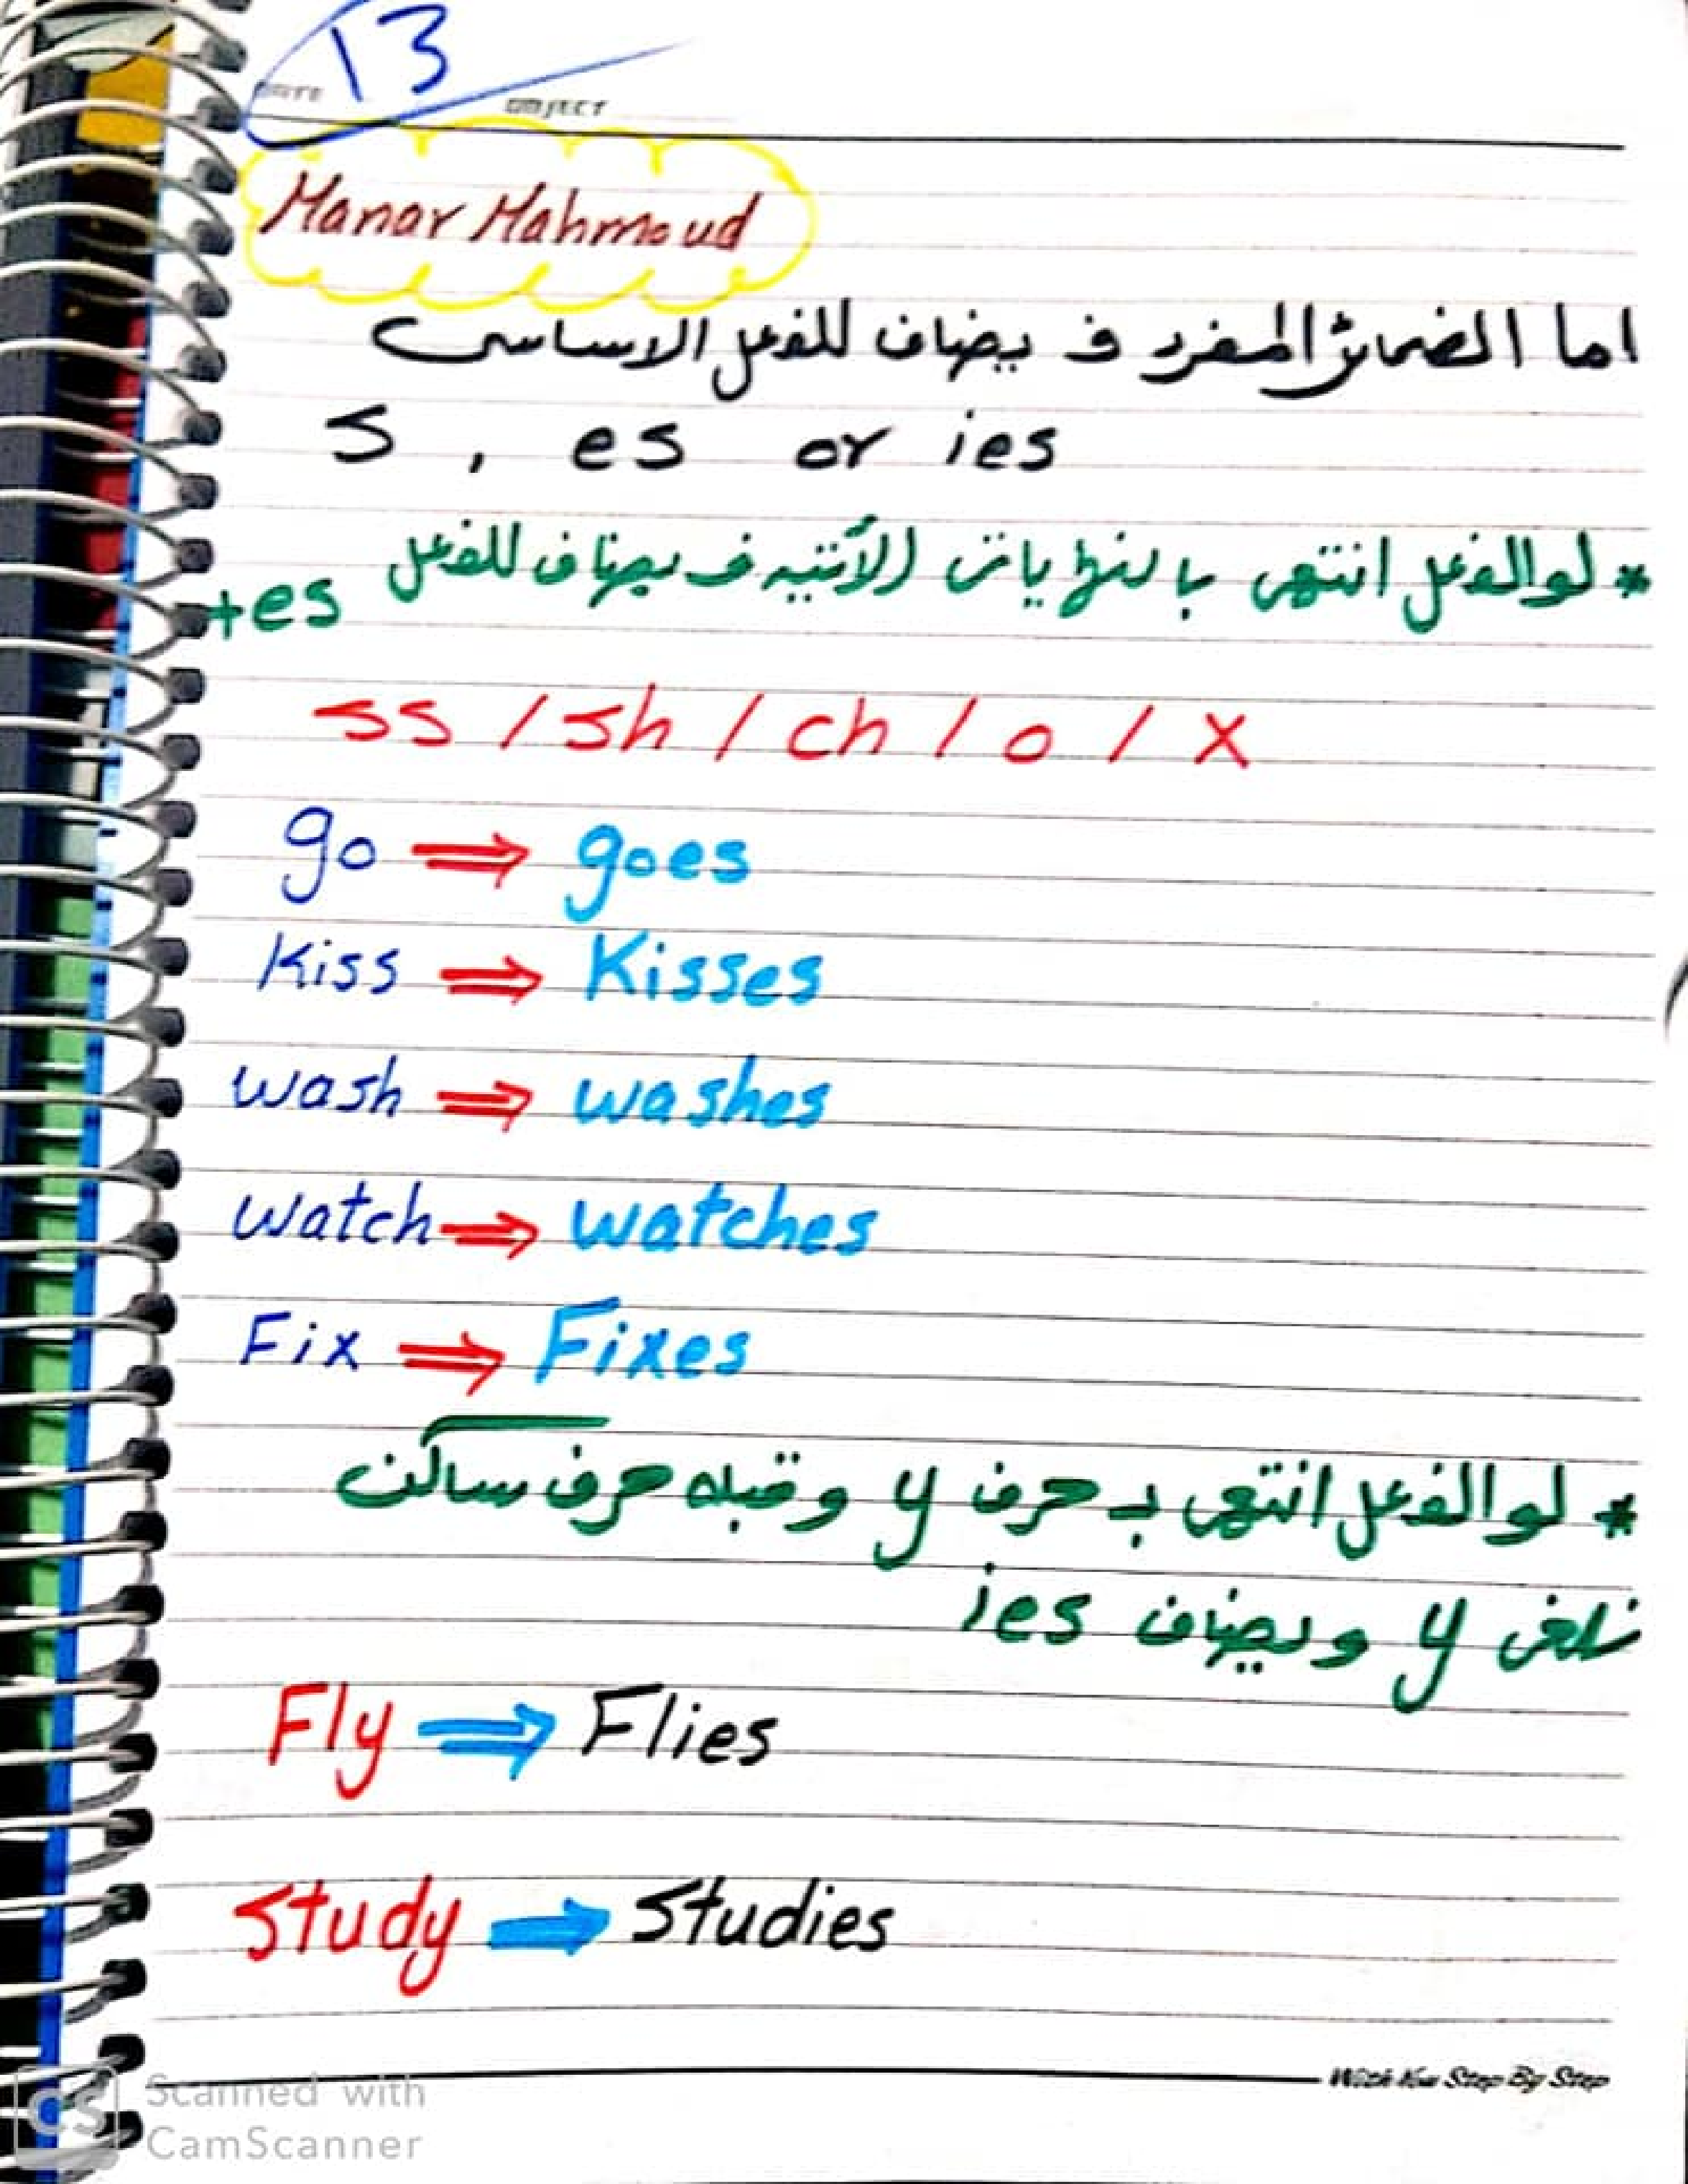 13
DATE
Manar Mahmoud
اما الضمائر المفرد ف يضاف للفعل الاساسى
s , es or ies
* لو الفعل انتهى بالنهايات الأتيه ف يضاف للفعل +es
ss / sh / ch / o / x
go ⇒ goes
Kiss ⇒ Kisses
wash ⇒ washes
watch ⇒ watches
Fix ⇒ Fixes
* لو الفعل انتهى بـ حرف y وقبله حرف ساكن
نلغى y ويضاف ies
Fly ⇒ Flies
Study ⇒ Studies
With You Step By Step
CS Scanned with
CamScanner